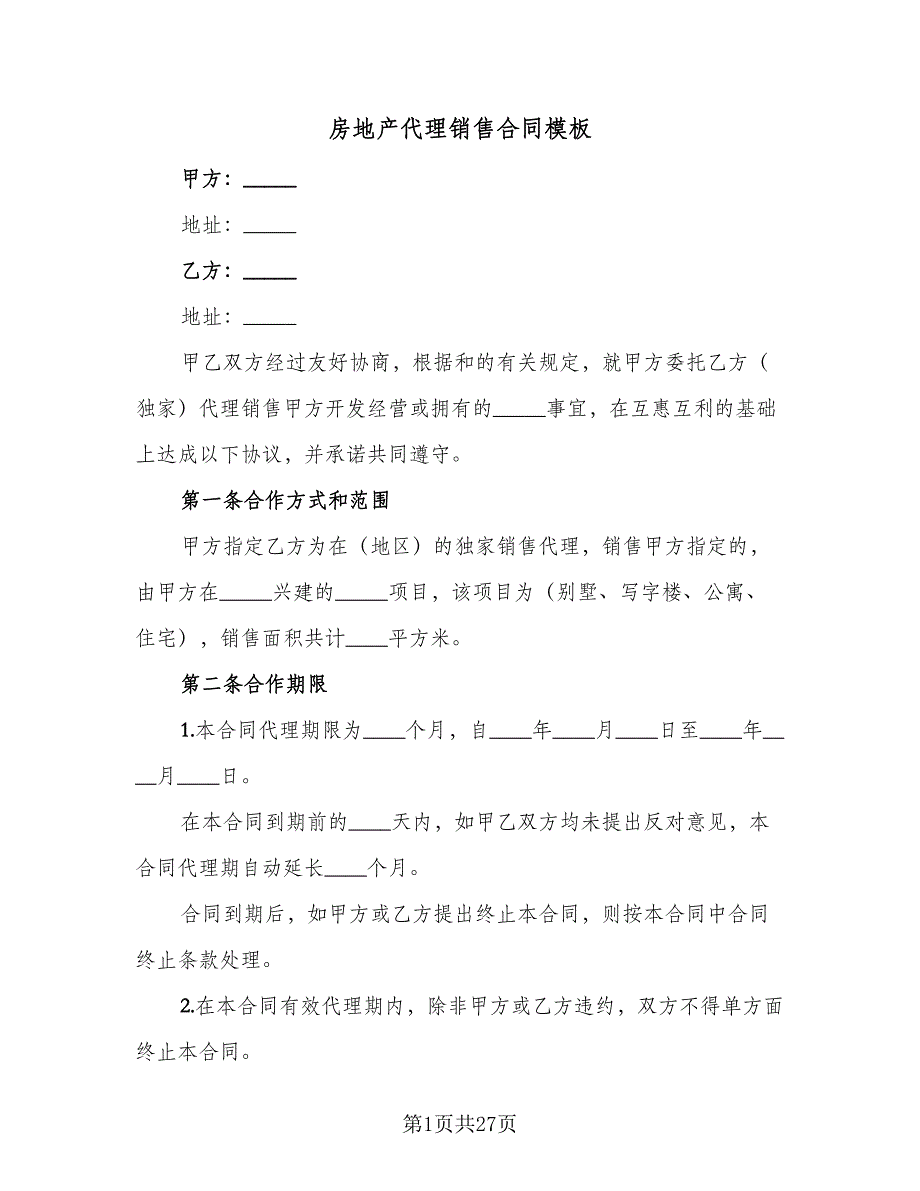 房地产代理销售合同模板
甲方：_____
地址：_____
乙方：_____
地址：_____
甲乙双方经过友好协商，根据和的有关规定，就甲方委托乙方（
独家）代理销售甲方开发经营或拥有的_____事宜，在互惠互利的基础
上达成以下协议，并承诺共同遵守。
第一条合作方式和范围
甲方指定乙方为在（地区）的独家销售代理，销售甲方指定的，
由甲方在_____兴建的_____项目，该项目为（别墅、写字楼、公寓、
住宅），销售面积共计____平方米。
第二条合作期限
1.本合同代理期限为____个月，自____年____月____日至____年__
__月____日。
在本合同到期前的____天内，如甲乙双方均未提出反对意见，本
合同代理期自动延长____个月。
合同到期后，如甲方或乙方提出终止本合同，则按本合同中合同
终止条款处理。
2.在本合同有效代理期内，除非甲方或乙方违约，双方不得单方面
终止本合同。
第1页共27页